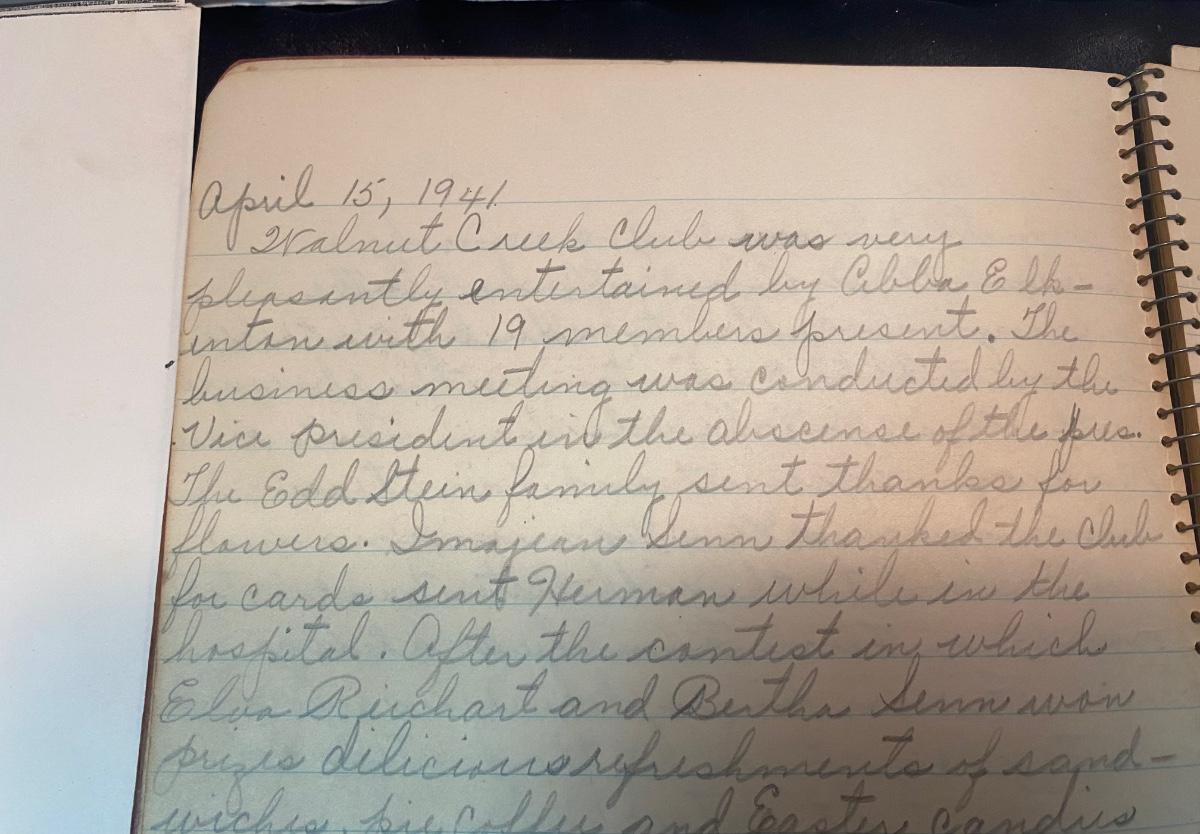 April 15, 1941
Walnut Creek Club was very
pleasantly entertained by Abba Elk-
inton with 19 members present. The
business meeting was conducted by the
Vice president in the abscense of the pres.
The Edd Stein family sent thanks for
flowers. Imajean Senn thanked the Club
for cards sent Herman while in the
hospital. After the contest in which
Elva Reichart and Bertha Senn won
prizes delicious refreshments of sand-
wiches, pie coffee and Easter candies